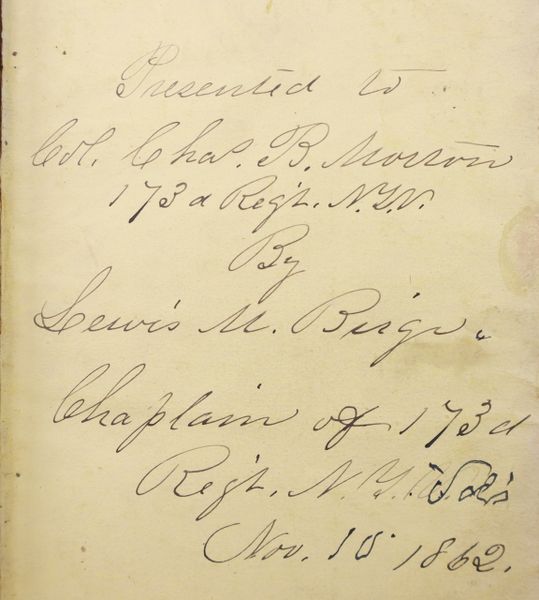 Presented to
Col. Chas. B. Morton
173d Reg't. N.Y.V.
By
Lewis M. Birge.
Chaplain of 173d
Reg't. N.Y. Vol's
Nov. 10 1862.